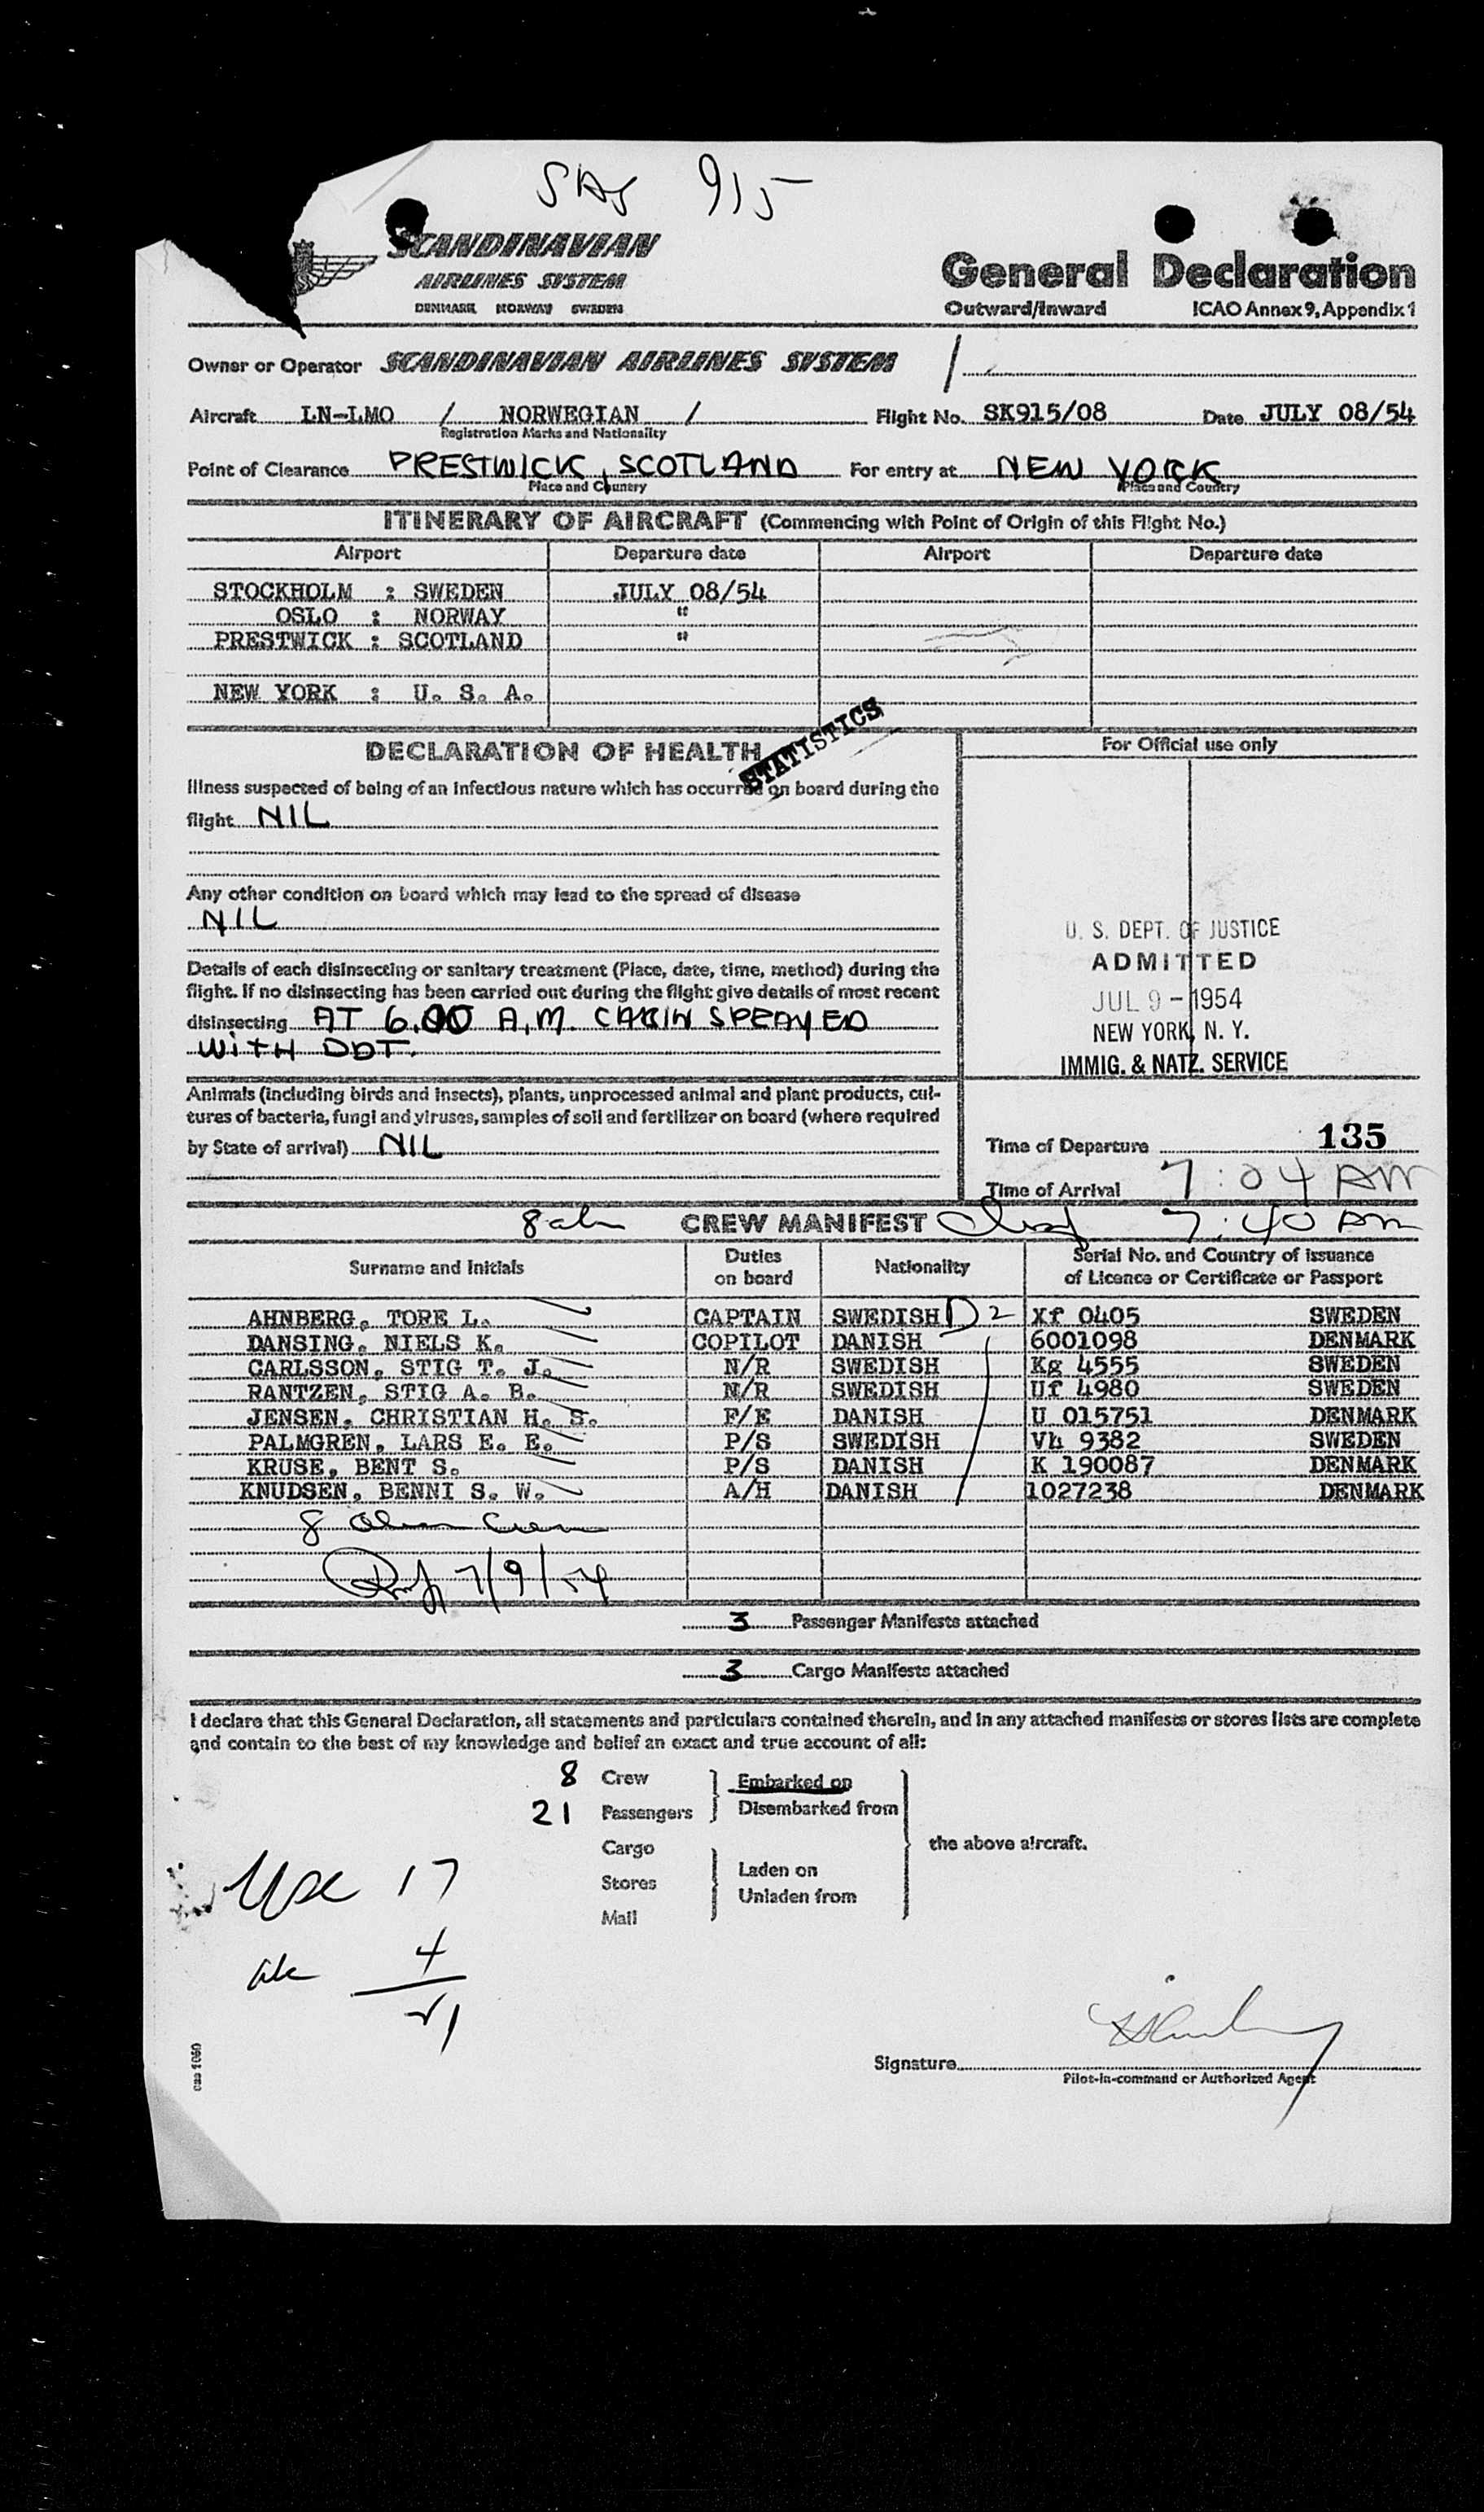 SAS 915
SCANDINAVIAN
AIRLINES SYSTEM
DENMARK NORWAY SWEDEN
General Declaration
Outward/Inward ICAO Annex 9, Appendix 1
Owner or Operator SCANDINAVIAN AIRLINES SYSTEM /
Aircraft LN-LMO / NORWEGIAN / Flight No. SK915/08 Date JULY 08/54
Registration Marks and Nationality
Point of Clearance PRESTWICK, SCOTLAND For entry at NEW YORK
Place and Country Place and Country
ITINERARY OF AIRCRAFT (Commencing with Point of Origin of this Flight No.)
Airport Departure date Airport Departure date
STOCKHOLM : SWEDEN JULY 08/54
OSLO : NORWAY "
PRESTWICK : SCOTLAND "
NEW YORK : U. S. A.
STATISTICS
DECLARATION OF HEALTH
Illness suspected of being of an infectious nature which has occurred on board during the
flight NIL
Any other condition on board which may lead to the spread of disease
NIL
Details of each disinsecting or sanitary treatment (Place, date, time, method) during the
flight. If no disinsecting has been carried out during the flight give details of most recent
disinsecting AT 6.00 A.M. CABIN SPRAYED
WITH DDT.
Animals (including birds and insects), plants, unprocessed animal and plant products, cul-
tures of bacteria, fungi and viruses, samples of soil and fertilizer on board (where required
by State of arrival) NIL
For Official use only
U. S. DEPT. OF JUSTICE
ADMITTED
JUL 9 - 1954
NEW YORK, N. Y.
IMMIG. & NATZ. SERVICE
Time of Departure 135
Time of Arrival 7:04 AM
8 CREW MANIFEST 7:40 AM
Surname and Initials Duties on board Nationality Serial No. and Country of issuance of Licence or Certificate or Passport
AHNBERG, TORE L. CAPTAIN SWEDISH D2 Xf 0405 SWEDEN
DANSING, NIELS K. COPILOT DANISH 6001098 DENMARK
CARLSSON, STIG T. J. N/R SWEDISH Kg 4555 SWEDEN
RANTZEN, STIG A. B. N/R SWEDISH Uf 4980 SWEDEN
JENSEN, CHRISTIAN H. S. F/E DANISH U 015751 DENMARK
PALMGREN, LARS E. E. P/S SWEDISH Vh 9382 SWEDEN
KRUSE, BENT S. P/S DANISH K 190087 DENMARK
KNUDSEN, BENNI S. W. A/H DANISH 1027238 DENMARK
8 Alien Crew
7/9/54
3 Passenger Manifests attached
3 Cargo Manifests attached
I declare that this General Declaration, all statements and particulars contained therein, and in any attached manifests or stores lists are complete
and contain to the best of my knowledge and belief an exact and true account of all:
8 Crew Embarked on
21 Passengers Disembarked from
Cargo the above aircraft.
Stores Laden on
Mail Unladen from
USC 17
4
21
Signature
Pilot-in-command or Authorized Agent